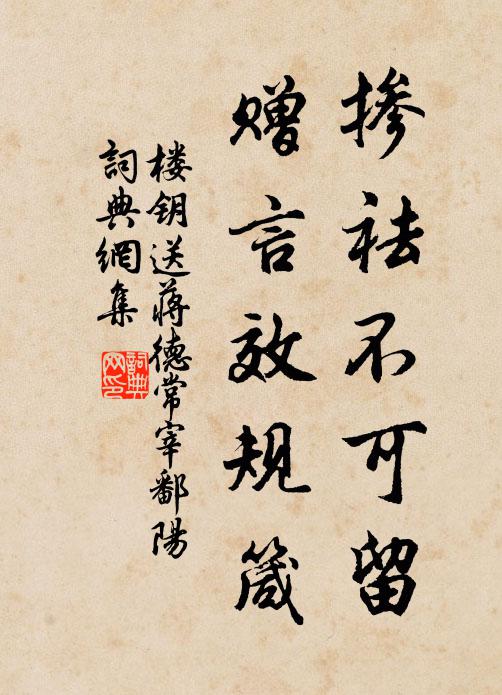 掺袪不可留
赠言效规箴
楼钥送蒋德常宰鄱陽
詞典網集
詞典網印